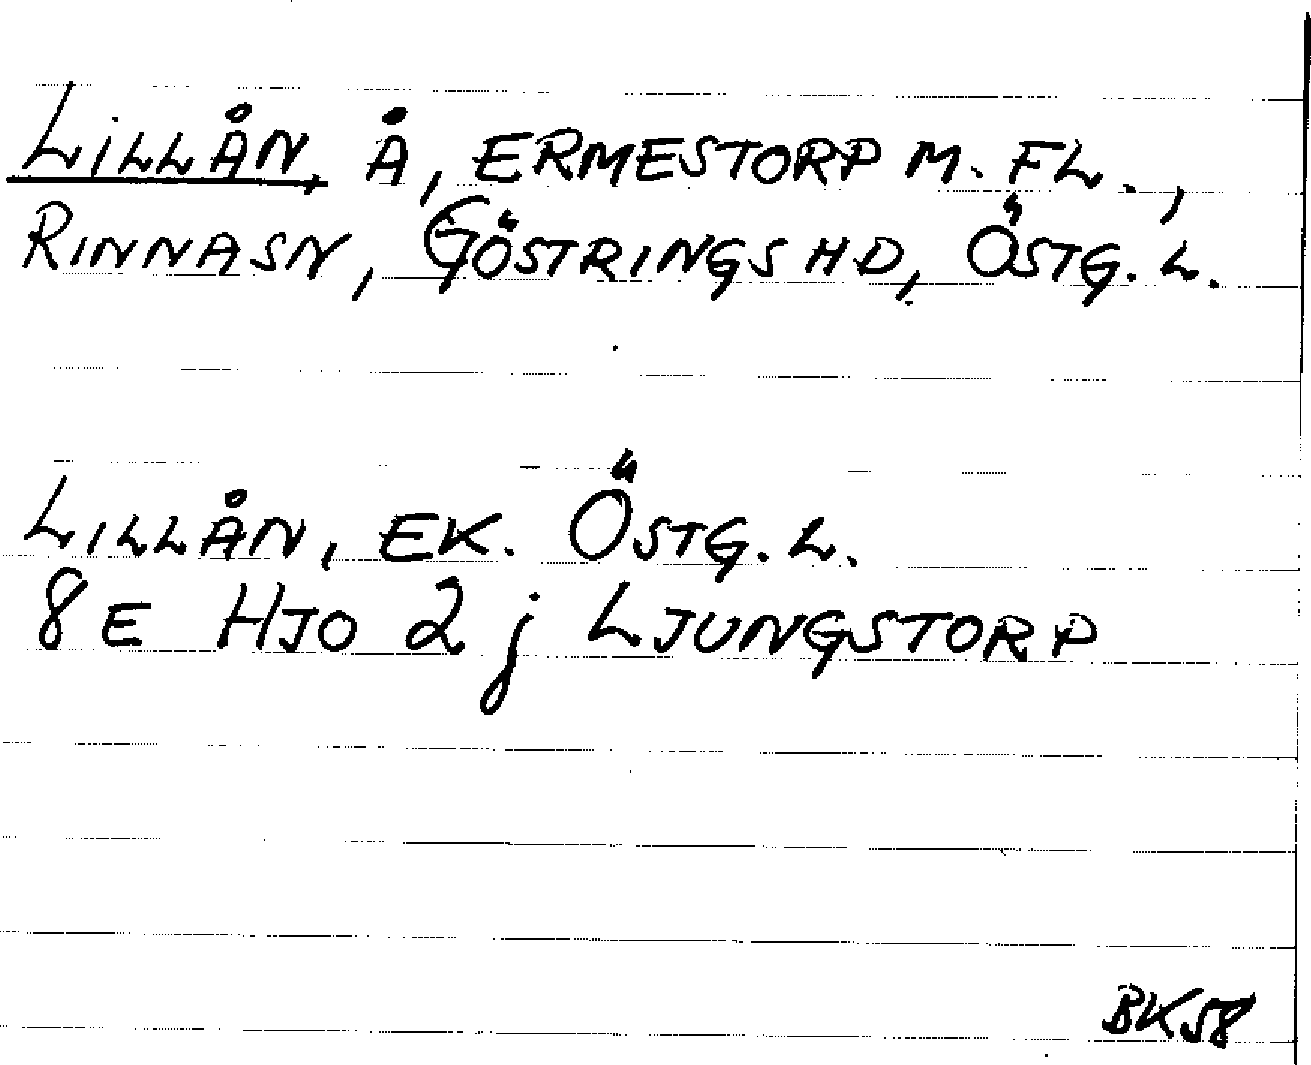 LILLÅN, Å, ERMESTORP M. FL.,
RINNA SN, GÖSTRINGS HD, ÖSTG. L.
LILLÅN, EK. ÖSTG. L.
8 E HJO 2 j LJUNGSTORP
BK58